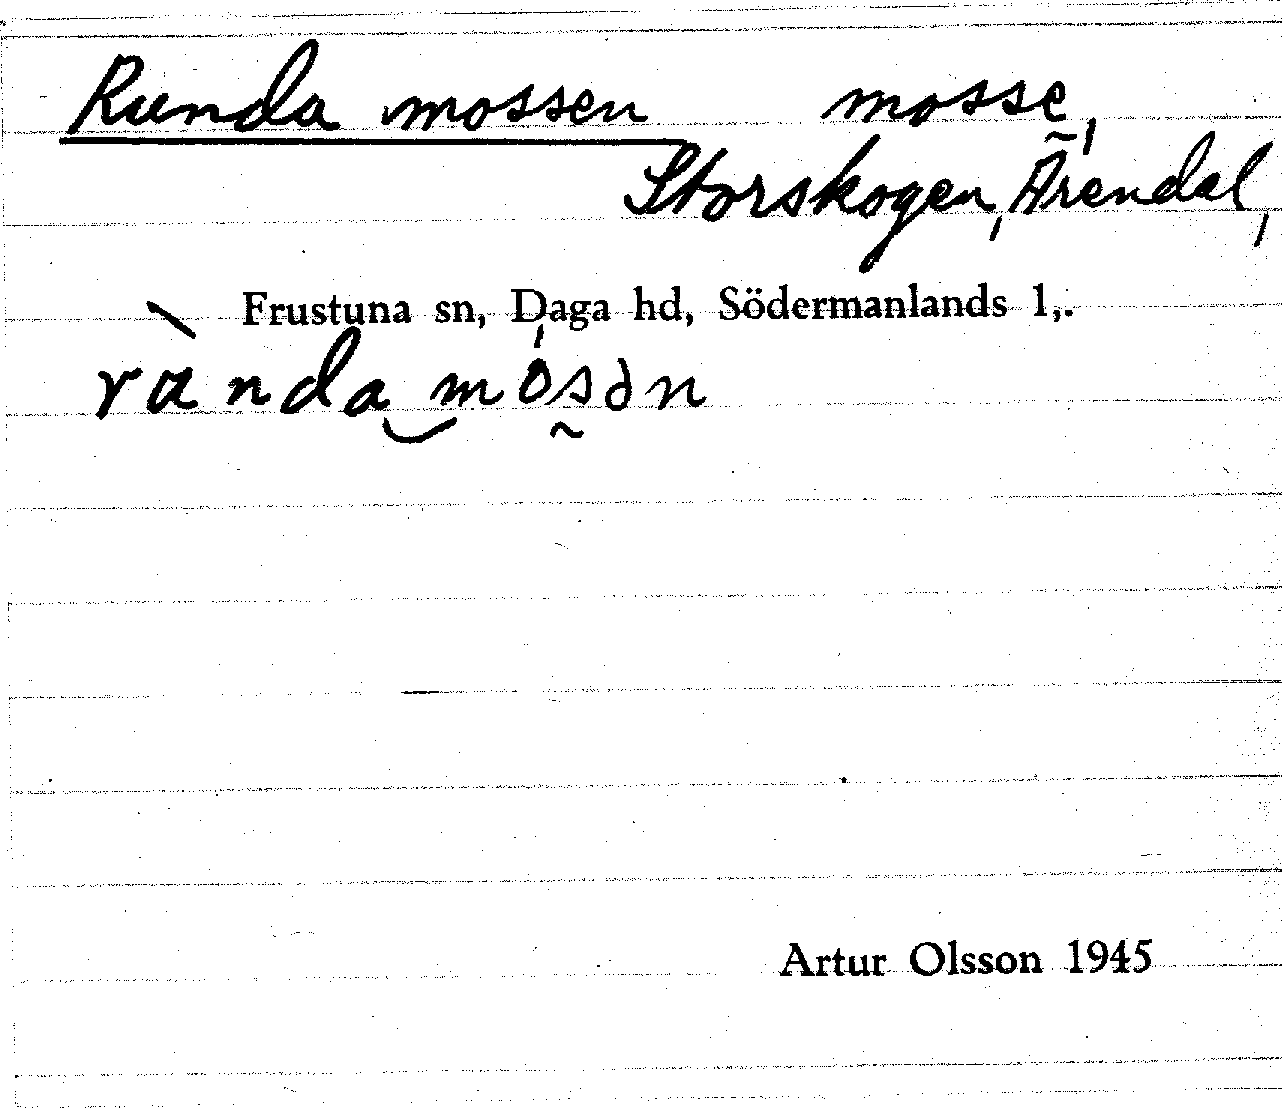 Runda mossen mosse,
Storskogen, Ärendal,
Frustuna sn, Daga hd, Södermanlands l,.
Artur Olsson 1945